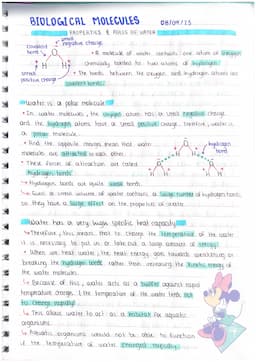 BIOLOGICAL MOLECULES 08/09/23
PROPERTIES & ROLES OF WATER
covalent bonds
small negative charge
O
H H
small positive charge
• A molecule of water contains one atom of oxygen
chemically bonded to two atoms of hydrogen.
• The bonds between the oxygen and hydrogen atoms are
covalent bonds.
Water is a polar molecule
• In water molecules, the oxygen atom has a small negative charge
and the hydrogen atoms have a small positive charge, therefore, water is
a polar molecule.
• And the opposite charges mean that water
molecules are attracted to each other.
• These forces of attraction are called
hydrogen bonds
hydrogen bond
↳ Hydrogen bonds are quite weak bonds.
↳ Even a small volume of water contains a large number of hydrogen bonds
so they have a large effect on the properties of water.
Water has a very high specific heat capacity
↳ Therefore, this means that to change the temperature of the water
it is necessary to put in or take out a large amount of energy.
• When we heat water, the heat energy goes towards
breaking the hydrogen bonds rather than increasing the kinetic energy of
the water molecules.
↳ Because of this, water acts as a buffer against rapid
temperature change (the temperature of the water tends not
to change rapidly)
↳ This allows water to act as a habitat for aquatic
organisms.
↳ Aquatic organisms would not be able to function
if the temperature of water changed rapidly.